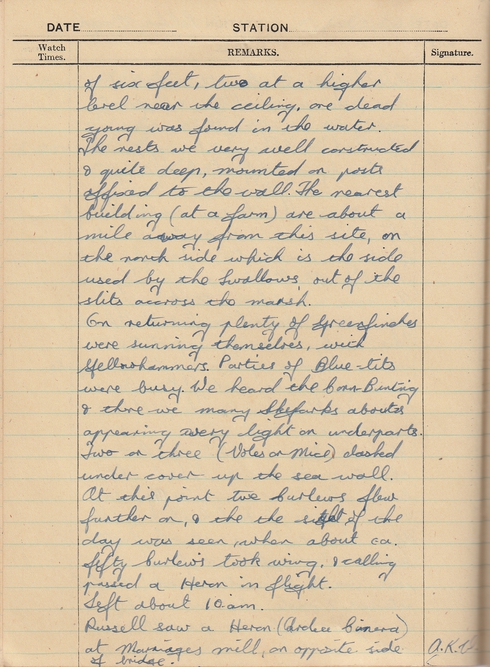 DATE STATION
Watch Times. REMARKS. Signature.
of six feet, two at a higher
level near the ceiling, one dead
young was found in the water.
The nests we very well constructed
& quite deep, mounted on posts
affixed to the wall. The nearest
building (at a farm) are about a
mile away from this site, on
the north side which is the side
used by the Swallows, out of the
slits accross the marsh.
On returning plenty of Greenfinches
were sunning themselves, with
Yellowhammers. Parties of Blue-tits
were busy. We heard the Corn Bunting
& there we many Skylarks about
appearing very light on underparts.
Two or three (Voles or Mice) dashed
under cover up the sea wall.
At this point two Curlews flew
further on, & the the sight of the
day was seen, when about ca.
fifty Curlews took wing, & calling
passed a Heron in flight.
Left about 10 am.
Russell saw a Heron (Ardea Cinera)
at Marriages mill, on opposite side
of bridge. A.K.